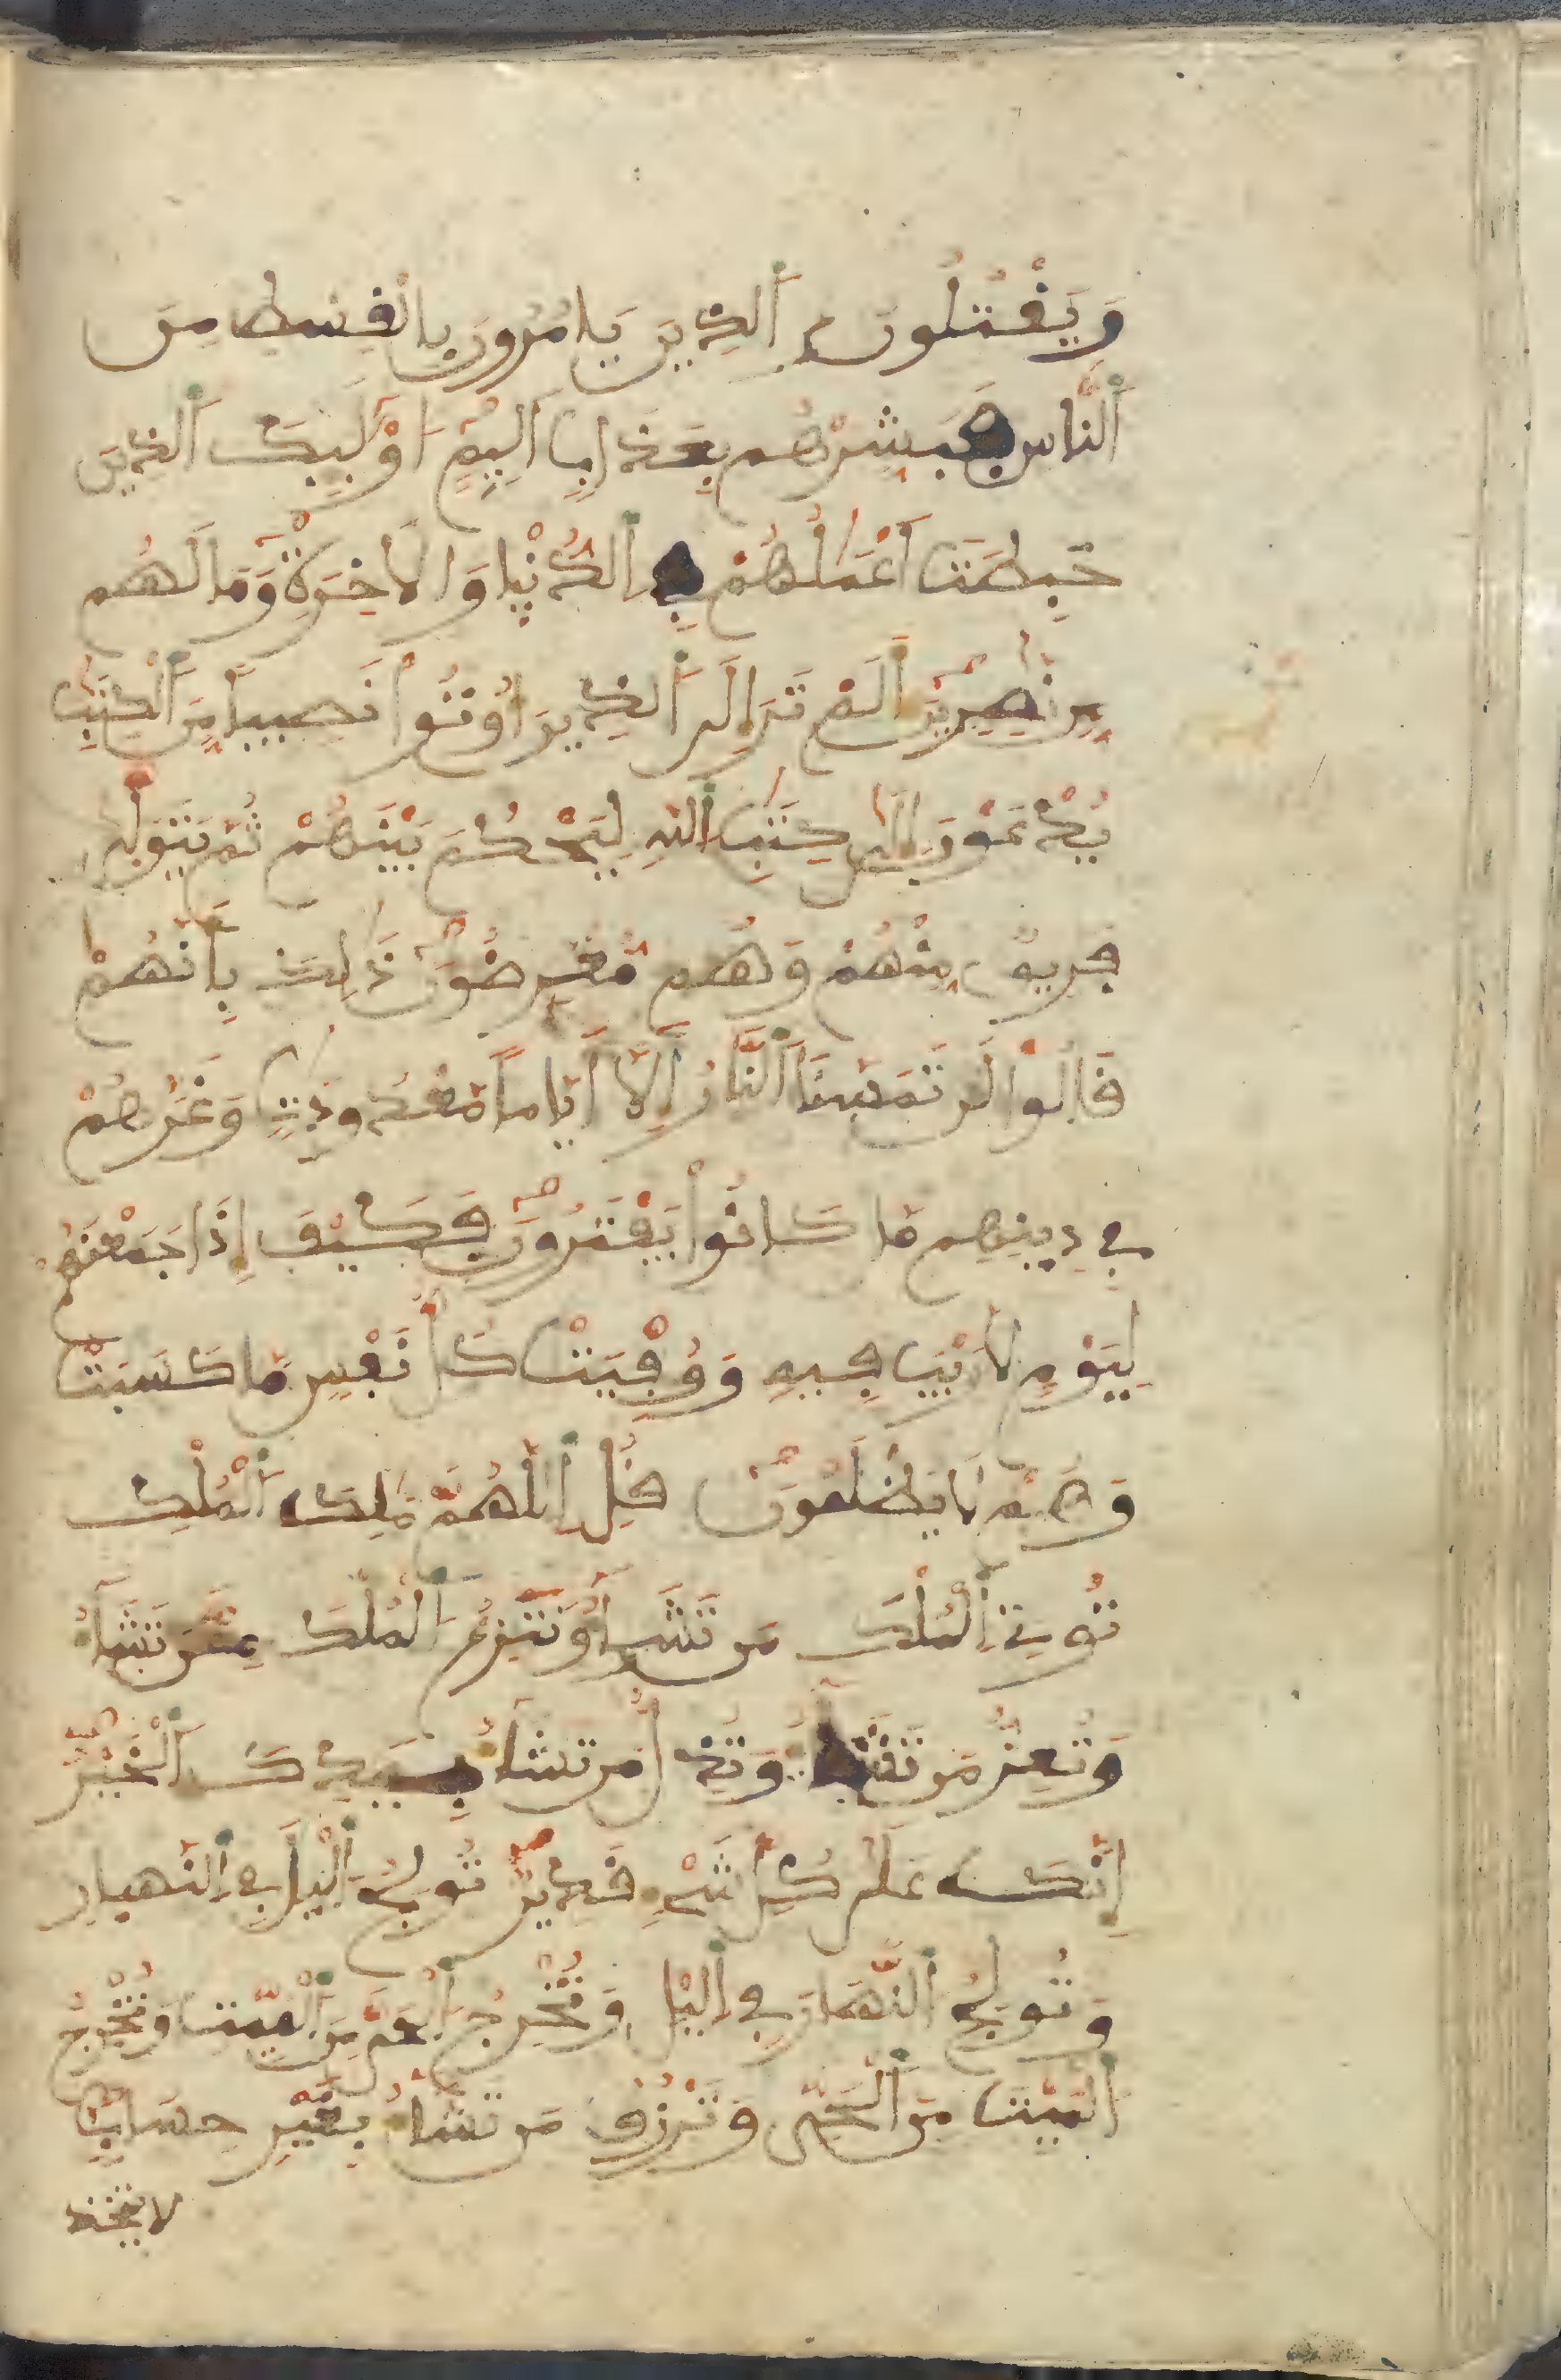 وَيَقْتُلُونَ اَ۬لذِينَ يَامُرُونَ بِالْقِسْطِ مِنَ
اَ۬لنَّاسِ فَبَشِّرْهُم بِعَذَابٍ اَلِيمٍ اُوْلَٰٓئِكَ اَ۬لذِينَ
حَبِطَتَ اَعْمَٰلُهُمْ فِے اِ۬لدُّنْيٖا وَالَاخِرَةِ وَمَا لَهُم
مِّن نَّٰصِرِينَ أَلَمْ تَرَ إِلَي اَ۬لذِينَ أُوتُواْ نَصِيباً مِّنَ اَ۬لْكِتَٰبِ
يُدْعَوْنَ إِلَيٰ كِتَٰبِ اِ۬للهِ لِيَحْكُمَ بَيْنَهُمْ ثُمَّ يَتَوَلّٖيٰ
فَرِيقٌ مِّنْهُمْ وَهُم مُّعْرِضُونَ ذَٰلِكَ بِأَنَّهُمْ
قَالُواْ لَن تَمَسَّنَا اَ۬لنَّارُ إِلَّآ أَيَّاماً مَّعْدُودَٰتٍ وَغَرَّهُمْ
فِي دِينِهِم مَّا كَانُواْ يَفْتَرُونَ فَكَيْفَ إِذَا جَمَعْنَٰهُمْ
لِيَوْمٍ لَّا رَيْبَ فِيهِ وَوُفِّيَتْ كُلُّ نَفْسٍ مَّا كَسَبَتْ
وَهُمْ لَا يُظْلَمُونَ قُلِ اِ۬للَّهُمَّ مَٰلِكَ اَ۬لْمُلْكِ
تُوتِے اِ۬لْمُلْكَ مَن تَشَآءُ وَتَنزِعُ اُ۬لْمُلْكَ مِمَّن تَشَآءُ
وَتُعِزُّ مَن تَشَآءُ وَتُذِلُّ مَن تَشَآءُ بِيَدِكَ اَ۬لْخَيْرُ
إِنَّكَ عَلَيٰ كُلِّ شَےْءٍ قَدِيرٌ تُولِجُ اُ۬ليْلَ فِي اِ۬لنَّهِارِ
وَتُولِجُ اُ۬لنَّهَارَ فِي اِ۬ليْلِ وَتُخْرِجُ اُ۬لْحَيَّ مِنَ اَ۬لْمَيِّتِ وَتُخْرِجُ
اُ۬لْمَيِّتَ مِنَ اَ۬لْحَيِّ وَتَرْزُقُ مَن تَشَآءُ بِغَيْرِ حِسَابٍ
لا يتخذ